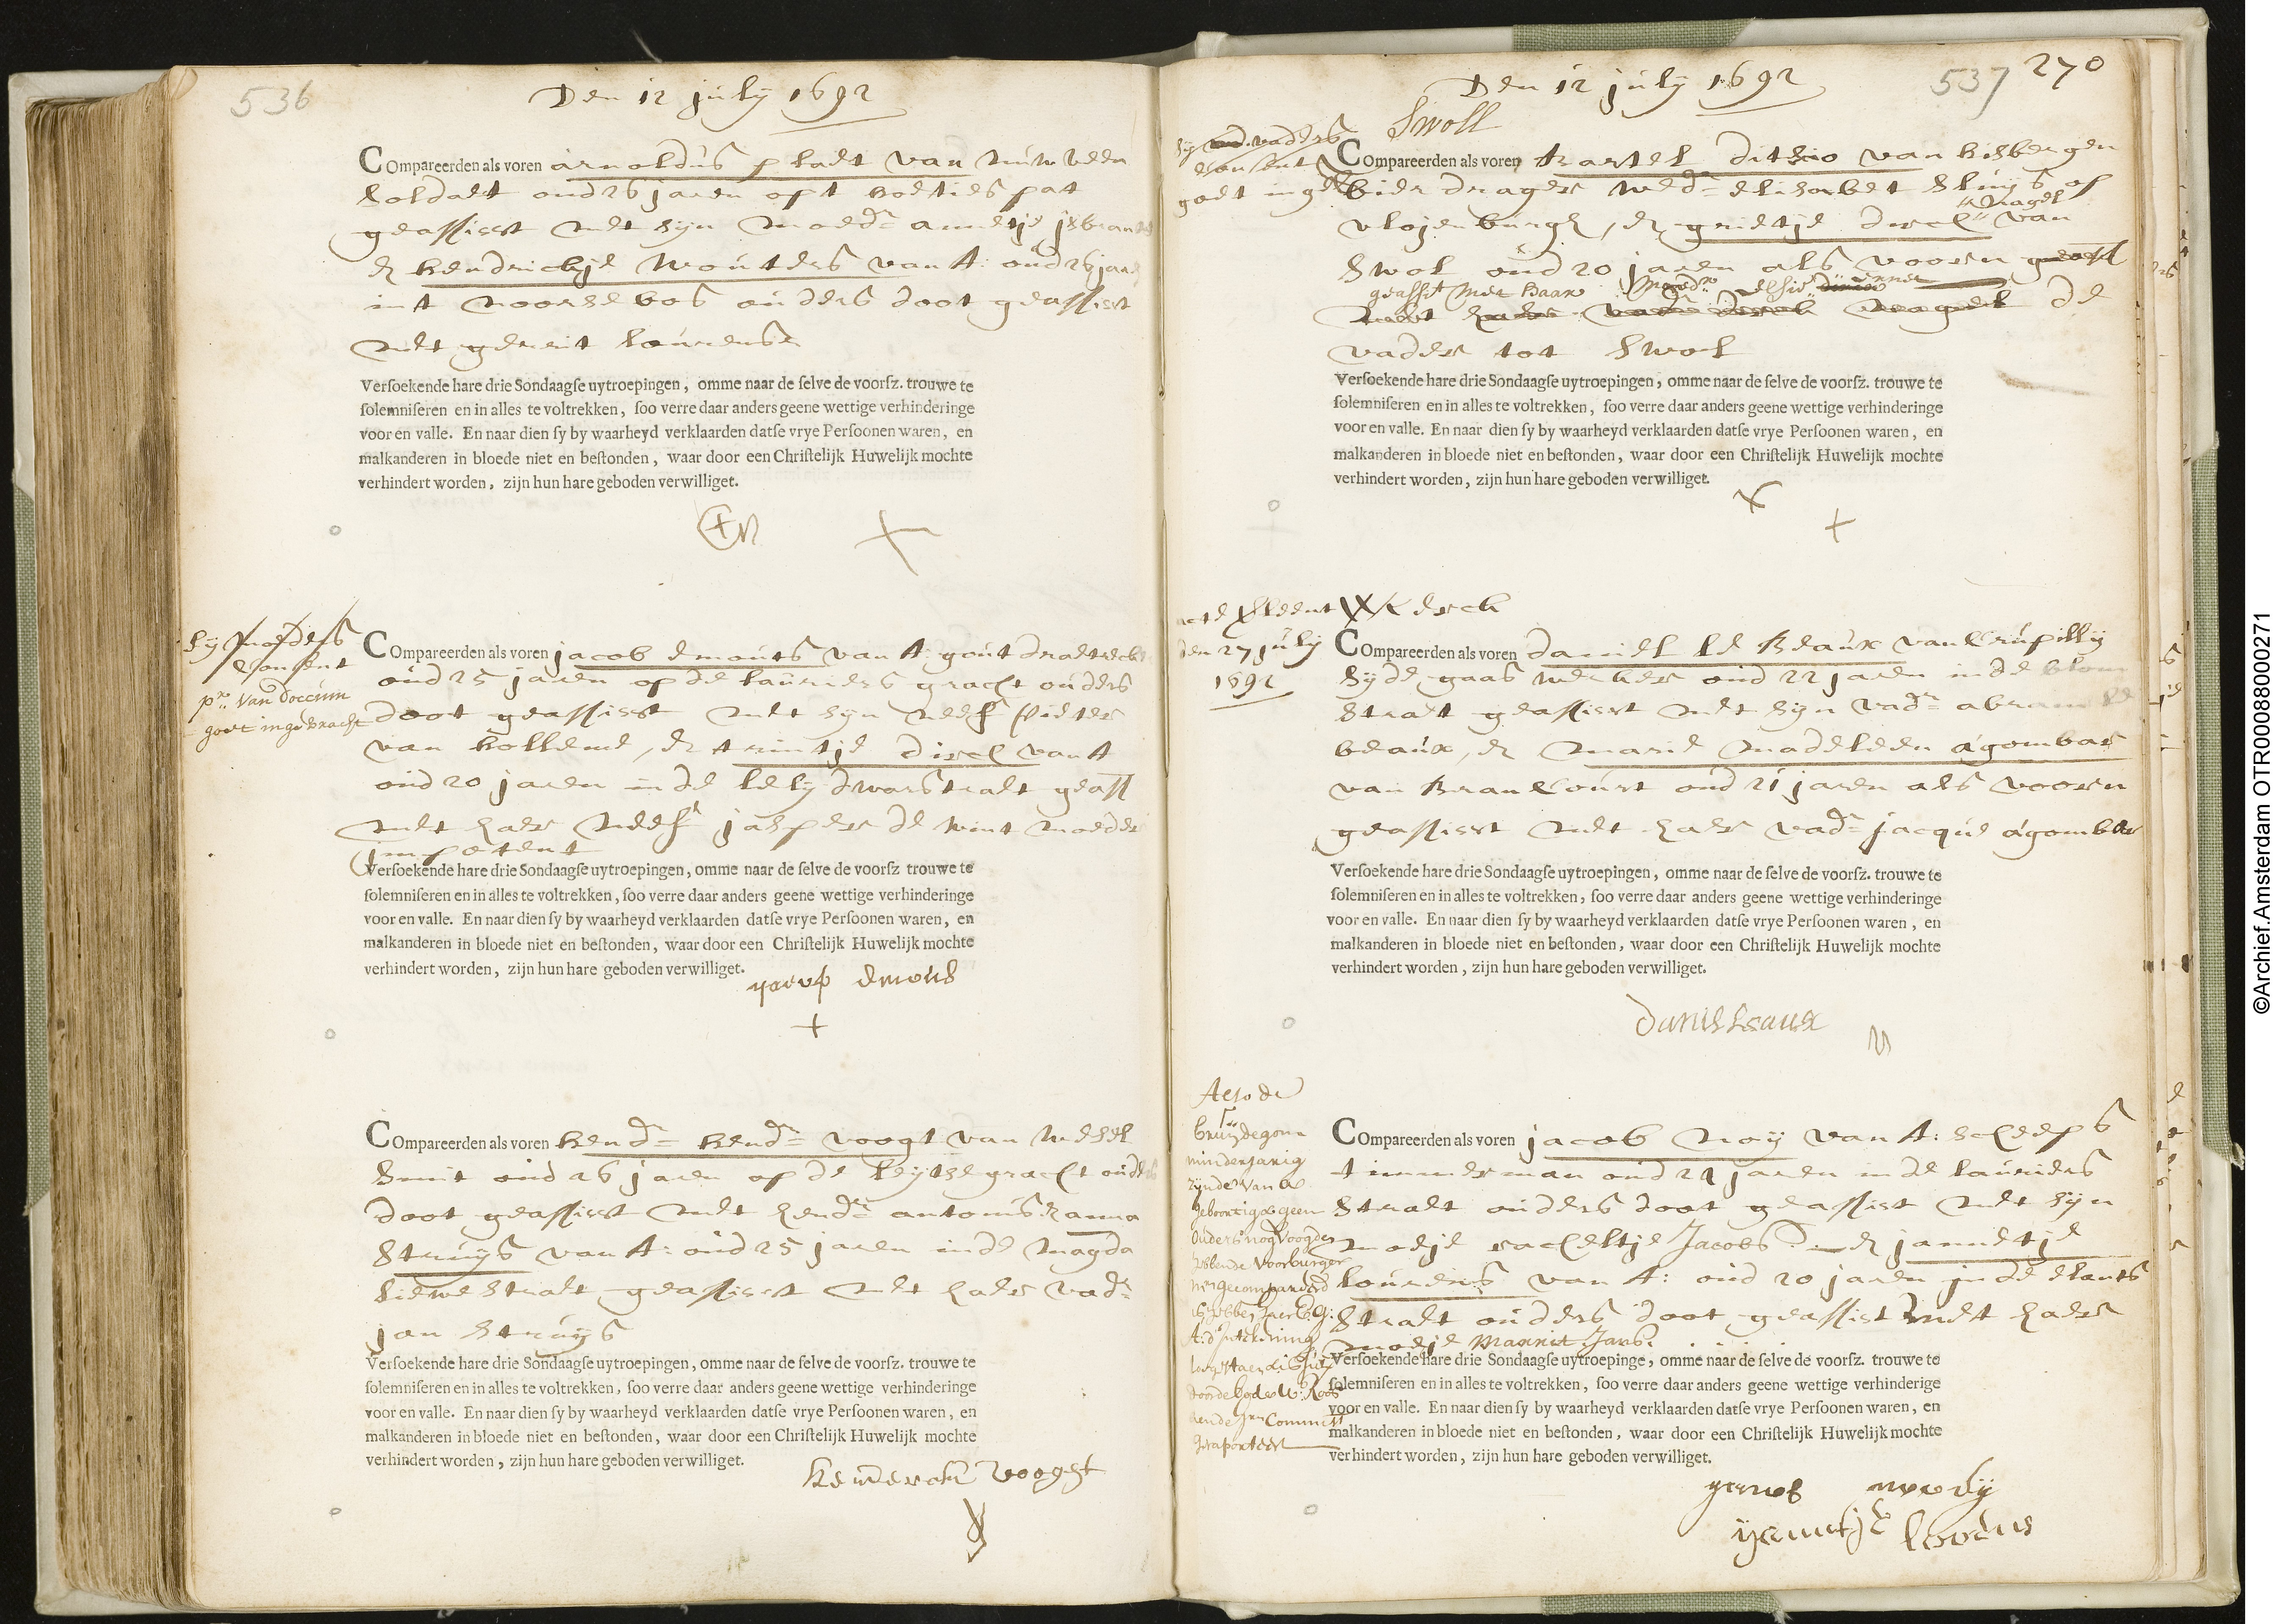 536
Den 12 july 1692
Compareerden als voren arnoldus pladt van
Soldaet oud 26 jaren opt
geassisst met syn moedr annetje jsbrants
& hendrickje Wouters van A: oud 26 jaren
int noortse bos ouders doot geassisst
met gerrit lourense
Versoekende hare drie Sondaagse uytroepingen, omme naar de selve de voorsz. trouwe te
solemniseren en in alles te voltrekken, soo verre daar anders geene wettige verhinderinge
voor en valle. En naar dien sy by waarheyd verklaarden datse vrye Persoonen waren, en
malkanderen in bloede niet en bestonden, waar door een Christelijk Huwelijk mochte
verhindert worden, zijn hun hare geboden verwilliget.
Sy moeders
Consent
pr. Van Doccum
goet ingebracht
Compareerden als voren jacob emouts van A: gout draetreck
oud 25 jaren op de lauriers gracht ouders
doot geassisst met syn neef pieter
van hollene, & trintje disel van A
oud 20 jaren in de lely dwarstraet geass
met haer neef jasper de wint moeder
impotent
Versoekende hare drie Sondaagse uytroepingen, omme naar de selve de voorsz trouwe te
solemniseren en in alles te voltrekken, soo verre daar anders geene wettige verhinderinge
voor en valle. En naar dien sy by waarheyd verklaarden datse vrye Persoonen waren, en
malkanderen in bloede niet en bestonden, waar door een Christelijk Huwelijk mochte
verhindert worden, zijn hun hare geboden verwilliget.
yacop emous
Compareerden als voren hendr hendr voogt van Wesel
Smit oud 26 jaren op de leytse gracht ouders
doot geassisst met hendr antonis & anna
Struijs van A: oud 25 jaren inde Magda
lienestraet geassisst met haer vadr
jan Struijs
Versoekende hare drie Sondaagse uytroepingen, omme naar de selve de voorsz. trouwe te
solemniseren en in alles te voltrekken, soo verre daar anders geene wettige verhinderinge
voor en valle. En naar dien sy by waarheyd verklaarden datse vrye Persoonen waren, en
malkanderen in bloede niet en bestonden, waar door een Christelijk Huwelijk mochte
verhindert worden, zijn hun hare geboden verwilliget.
Voogt
Den 12 july 1692
537 270
Swoll
Sy vaders
Consent
goet inge
Compareerden als voren van
bier drager wedr elisabet Sluijs op
nagel
vlojenburgh, & grietje van
Swol oud 20 jaren als vooren
geasst Met haar Moedr
de
vader tot Swol
Versoekende hare drie Sondaagse uytroepingen, omme naar de selve de voorsz. trouwe te
solemniseren en in alles te voltrekken, soo verre daar anders geene wettige verhinderinge
voor en valle. En naar dien sy by waarheyd verklaarden datse vrye Persoonen waren, en
malkanderen in bloede niet en bestonden, waar door een Christelijk Huwelijk mochte
verhindert worden, zijn hun hare geboden verwilliget.
acte verleent kerck
den 27 july
1692
Compareerden als voren daniel le Beaux van Crupilly
Syde gaas wercker oud 22 jaren inde blom
Straet geassisst met syn vadr abram le
beaux, & marie madeleen agombar
van Brancourt oud 21 jaren als vooren
geassisst met haer vadr jacque agombar
Versoekende hare drie Sondaagse uytroepingen, omme naar de selve de voorsz. trouwe te
solemniseren en in alles te voltrekken, soo verre daar anders geene wettige verhinderinge
voor en valle. En naar dien sy by waarheyd verklaarden datse vrye Persoonen waren, en
malkanderen in bloede niet en bestonden, waar door een Christelijk Huwelijk mochte
verhindert worden, zijn hun hare geboden verwilliget.
Alsode
bruydegom
minderjarig
zijnde van A
geboortig & geen
ouders nog Voogden
hebbende
Compareerden als voren jacob noy van A: scheeps
timmerman oud 24 jaren in de lauriers
Straet ouders doot geassisst met syn
moeje racheltje Jacobs & jannetje
lourens van A: oud 20 jaren in de elants
Straet ouders doot geassisst met haer
moeje Marrit Jans.
Versoekende hare drie Sondaagse uytroepinge, omme naar de selve de voorsz. trouwe te
solemniseren en in alles te voltrekken, soo verre daar anders geene wettige verhinderige
voor en valle. En naar dien sy by waarheyd verklaarden datse vrye Persoonen waren, en
malkanderen in bloede niet en bestonden, waar door een Christelijk Huwelijk mochte
verhindert worden, zijn hun hare geboden verwilliget.
©Archief.Amsterdam OTR00088000271